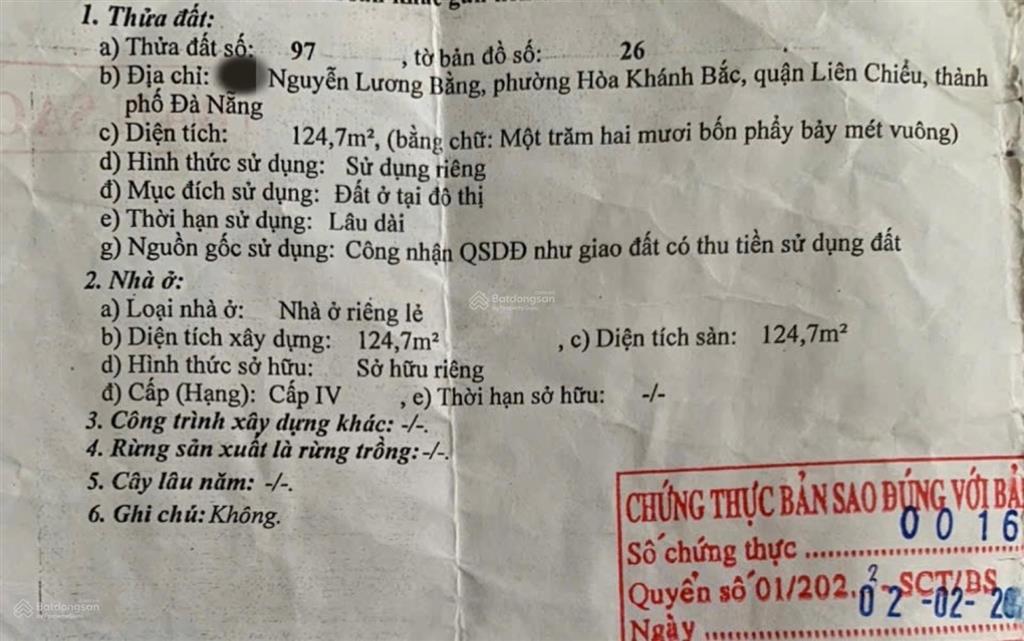 1. Thửa đất:
a) Thửa đất số: 97 , tờ bản đồ số: 26
b) Địa chỉ: Nguyễn Lương Bằng, phường Hòa Khánh Bắc, quận Liên Chiểu, thành
phố Đà Nẵng
c) Diện tích: 124,7m², (bằng chữ: Một trăm hai mươi bốn phẩy bảy mét vuông)
d) Hình thức sử dụng: Sử dụng riêng
đ) Mục đích sử dụng: Đất ở tại đô thị
e) Thời hạn sử dụng: Lâu dài
g) Nguồn gốc sử dụng: Công nhận QSDĐ như giao đất có thu tiền sử dụng đất
2. Nhà ở:
a) Loại nhà ở: Nhà ở riêng lẻ
b) Diện tích xây dựng: 124,7m² , c) Diện tích sàn: 124,7m²
d) Hình thức sở hữu: Sở hữu riêng
đ) Cấp (Hạng): Cấp IV , e) Thời hạn sở hữu: -/-
3. Công trình xây dựng khác: -/-.
4. Rừng sản xuất là rừng trồng: -/-.
5. Cây lâu năm: -/-.
6. Ghi chú: Không.
CHỨNG THỰC BẢN SAO ĐÚNG VỚI
Số chứng thực 0 0 1 6
Quyển số 01/202.2 -SCT/BS
Ngày 02 -02-
Batdongsan
Batdongsan